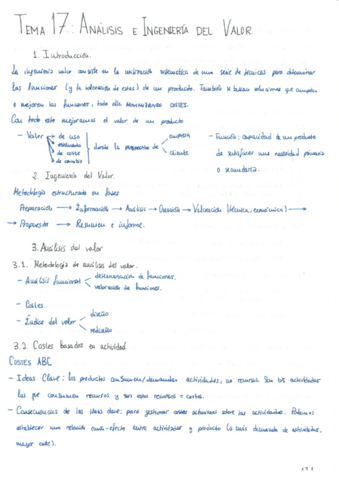 TEMA 17: ANÁLISIS E INGENIERÍA DEL VALOR
1. Introducción.
La ingeniería valor consiste en la utilización sistemática de una serie de técnicas para determinar
las funciones (y la valoración de estas) de un producto. También se buscan soluciones que cumplan
o mejoren las funciones, todo ello minimizando costes.
Con todo esto mejoramos el valor de un producto
- Valor de uso empresa - Función: capacidad de un producto
estimado desde la perspectiva de de satisfacer una necesidad primaria
de coste cliente o secundaria.
de cambio
2. Ingeniería del Valor.
Metodología estructurada en fases
Preparación → Información → Análisis → Creación → Valoración (técnica, económica) →
→ Propuesta → Resumen e informe.
3. Análisis del valor
3.1. Metodología de análisis del valor.
- Análisis funcional determinación de funciones.
valoración de funciones.
- Costes
- Índice del valor directo
reducido
3.2. Costes basados en actividad.
COSTES ABC
- Ideas Clave: los productos consumen/demandan actividades, no recursos. Son las actividades
las que consumen recursos y son estos recursos = costes.
- Consecuencias de las ideas clave: para gestionar costes actuamos sobre las actividades. Podemos
establecer una relación causa-efecto entre actividades y producto (a más demanda de actividades,
mayor coste).
17.1